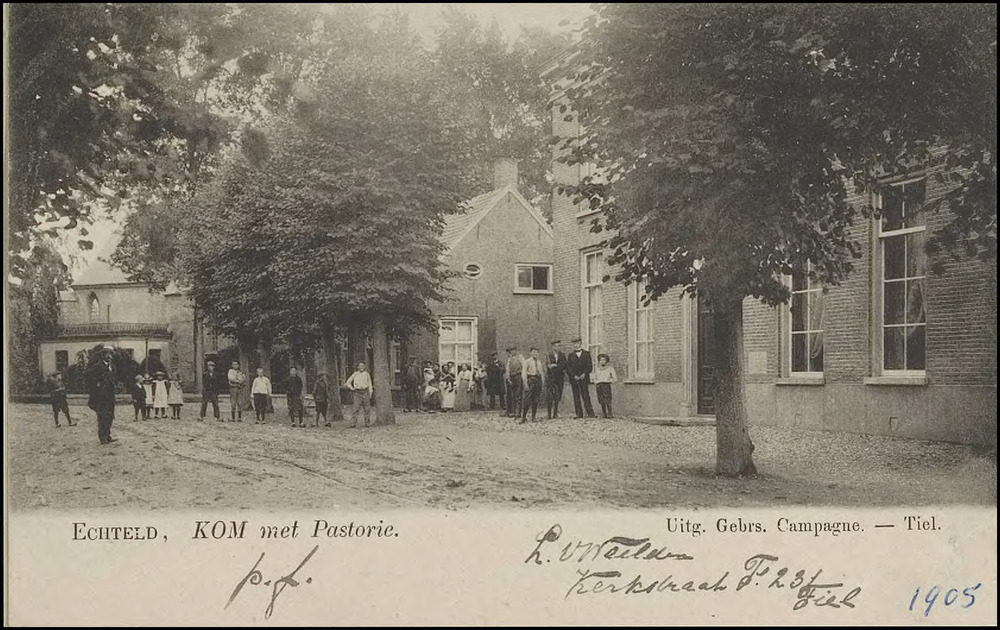 ECHTELD, KOM met Pastorie.
Uitg. Gebrs. Campagne. — Tiel.
p. f.
L. v
Kerkstraat F. 231
Tiel
1905